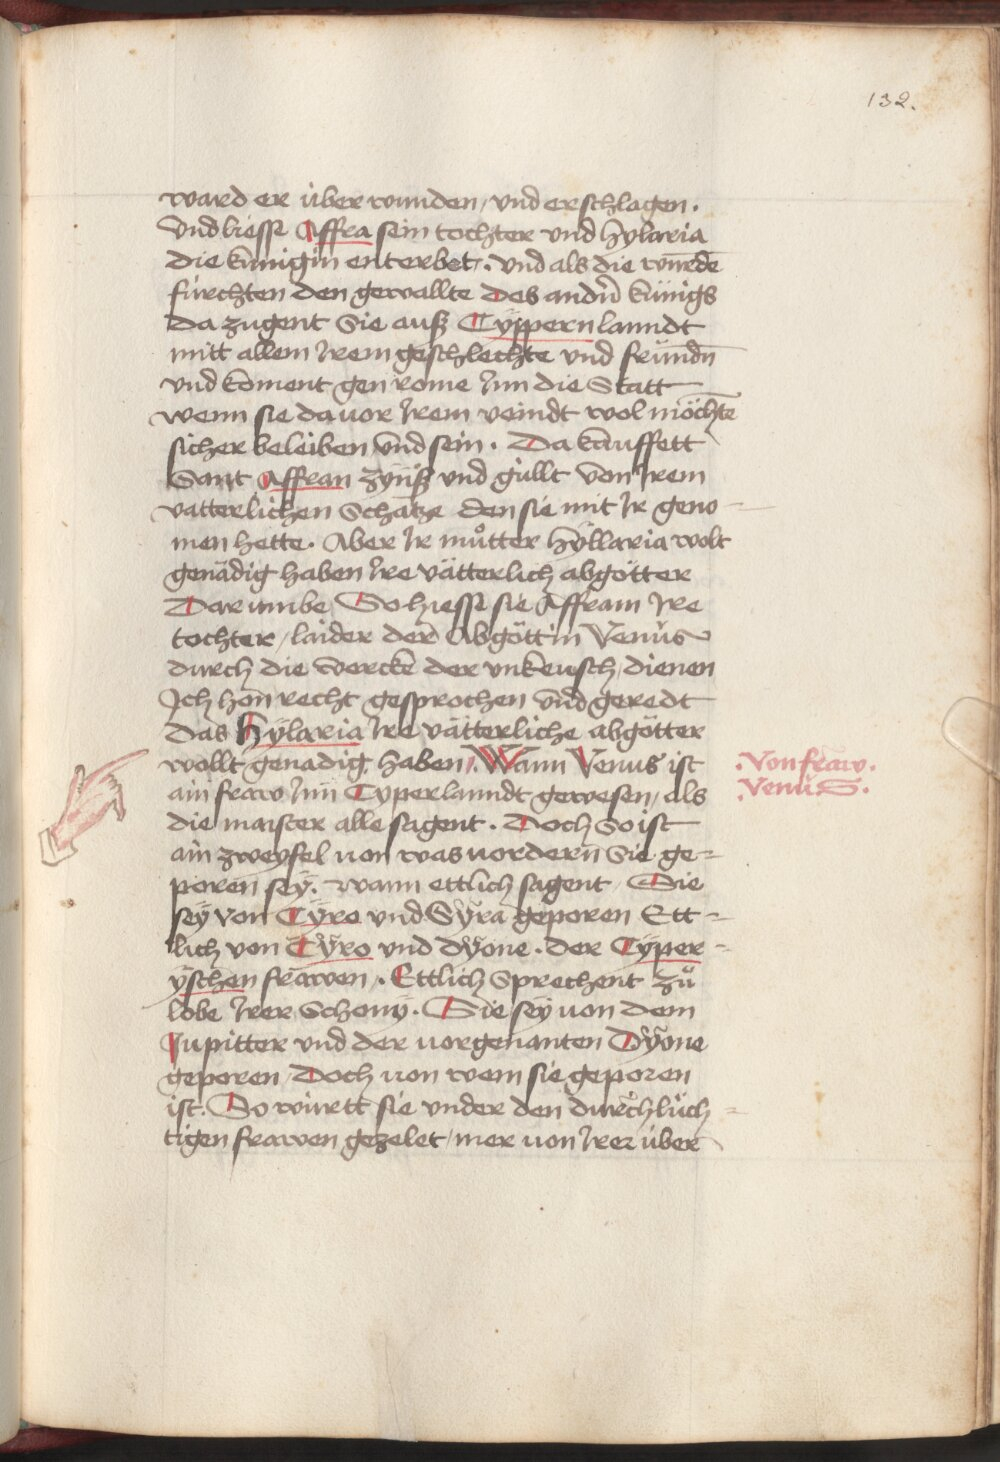 132.
ward er über wunden / vnd erschlagen .
Vnd liesse Affra sein tochter vnd hylaria
die künigin enterbet . vnd als die wurdē
fürchten den gewallte Des andrñ künigs
Da zugent Sie auß Cÿppern lanndt
mitt allem Irem geschlechte vnd fründñ
vnd koment gen rome Inn die Statt
wenn sie da vor Irem veindt wol möchtē
sicher beleiben vnd sein . Da kauffett
Sant Affran zÿnß vnd gullt von Irem
vatterlichen Schatze den sie mit Ir geno-
men hette . Aber Ir můtter hÿllaria wolt
genädig haben Ire vätterlich abgötter
Dar umbe So hiesse sie Affram Ire
tochter / laider der Abgöttin Venus
durch die wercke der vnkeusch / dienen
Ich hon recht gesprochen vnd geredt
das Hÿlaria Ire vätterliche abgötter
wollt genadig haben / Wann Venus ist
.Von fraw.
.Venus.
ain fraw Inn Cyperlanndt gewesen / als
die maister alle sagent . Doch so ist
ain zweyfel von was vordern Sie ge=
poren seÿ . wann ettlich sagent / Sie
seÿ von Cÿro vnd Sÿra geporen Ett=
lich von Cÿro vnd dÿone . der Cÿper=
ÿschen frawen . Ettlich Sprechent zů
lobe Irer Schonÿ . Sie seÿ von dem
Jupitter vnd der vorgenanten Dÿone
geporen / Doch von wem sie geporen
ist . So wirtt sie vnder den durchlüch=
tigen frawen gezelet / mer von Irer über